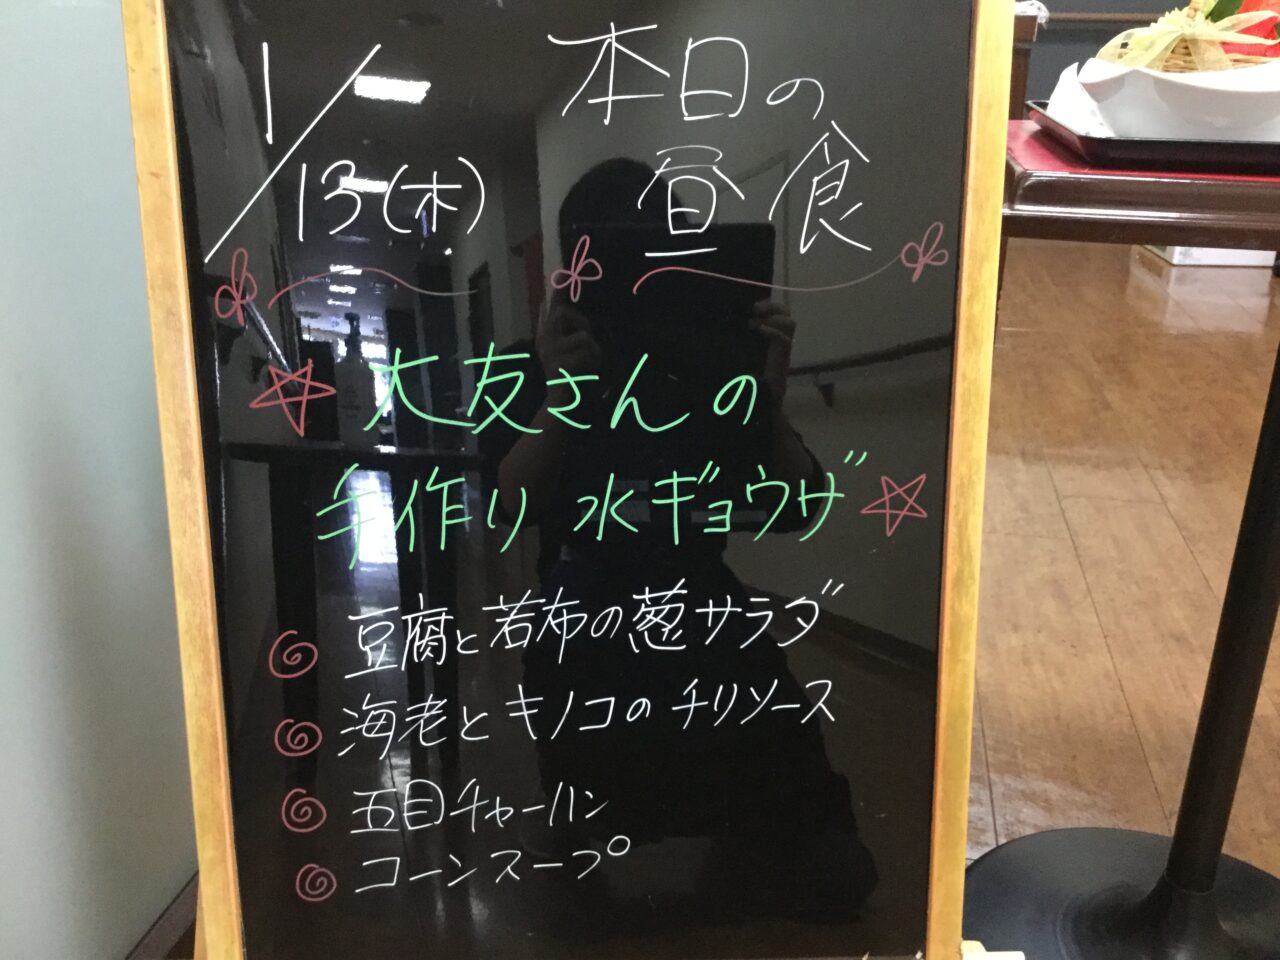 1/13(木)
本日の
昼食
大友さんの
手作り 水ギョウザ
豆腐と若布の葱サラダ
海老とキノコのチリソース
五目チャーハン
コーンスープ